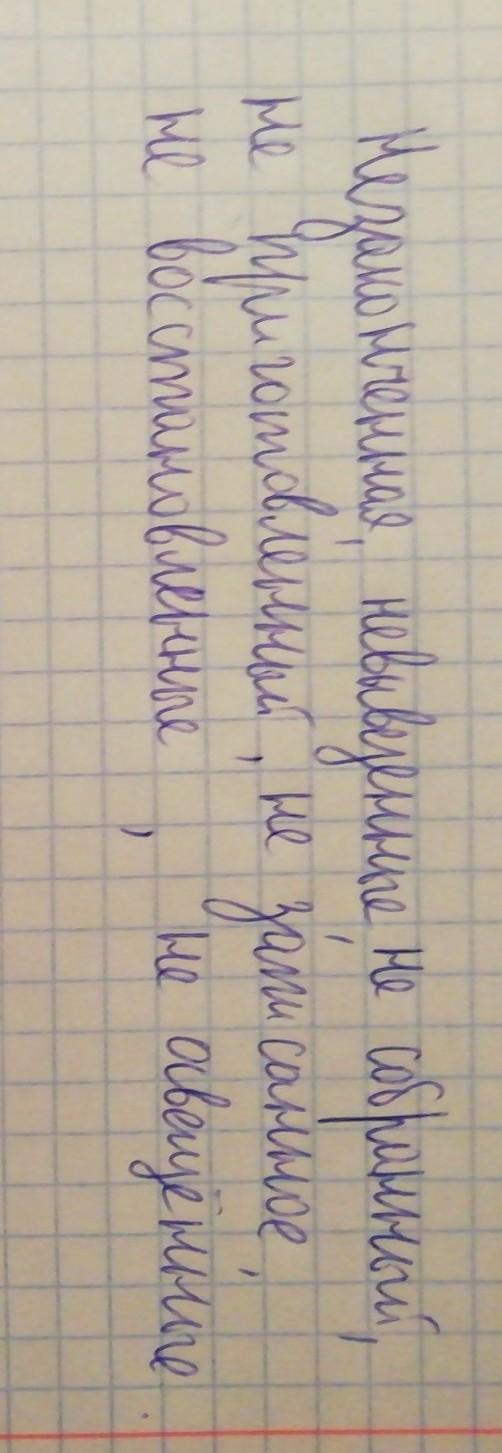 Незаконченная, невывезенные, не собранный,
не приготовленный, не записанное,
не восстановленные, не авещённые.